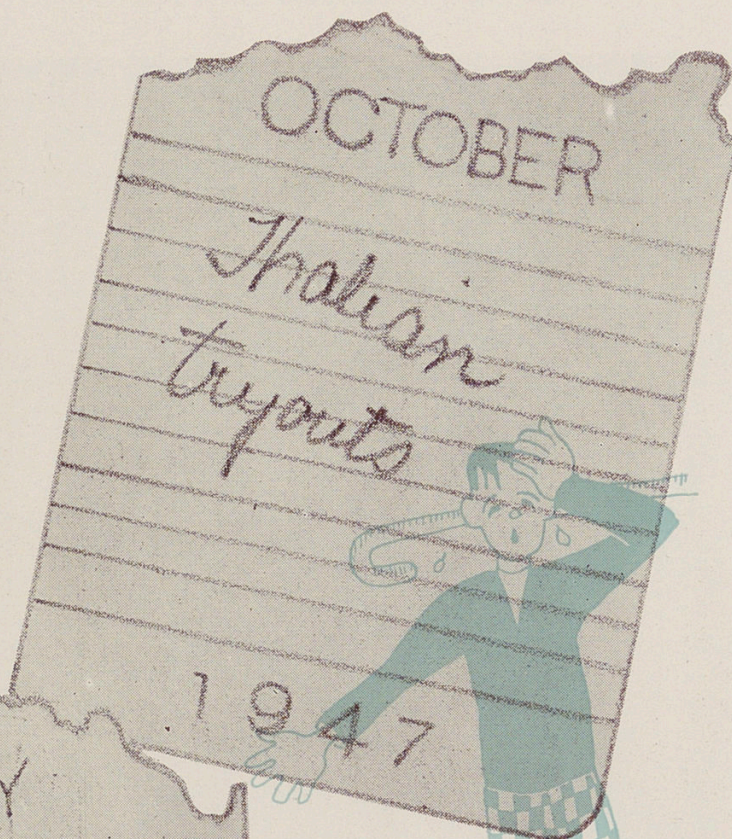 OCTOBER
Thalian
tryouts
1947
Y